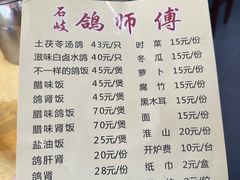 石岐 鸽师傅
土茯苓汤鸽 43元/只 时菜 15元/份
滋味白卤水鸽 43元/只 冬瓜 15元/份
不一样的鸽饭 45元/煲 萝卜 15元/份
腊味饭 45元/煲 腐竹 15元/份
鸽肾饭 45元/煲 黑木耳 15元/份
腊味鸽饭 50元/煲 面 15元/份
腊味肾饭 50元/煲 淮山 20元/份
盐油饭 20元/煲 开炉费 10元/台
鸽肝肾 20元/份 纸巾 2元/盒
鸽肾 28元/份